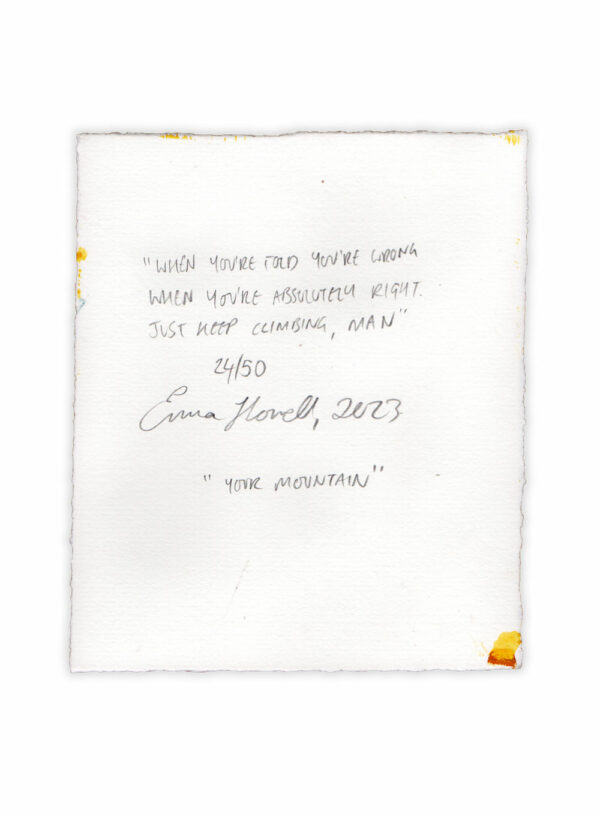 "WHEN YOU'RE TOLD YOU'RE WRONG
WHEN YOU'RE ABSOLUTELY RIGHT.
JUST KEEP CLIMBING, MAN"
24/50
Emma Howell, 2023
"YOUR MOUNTAIN"